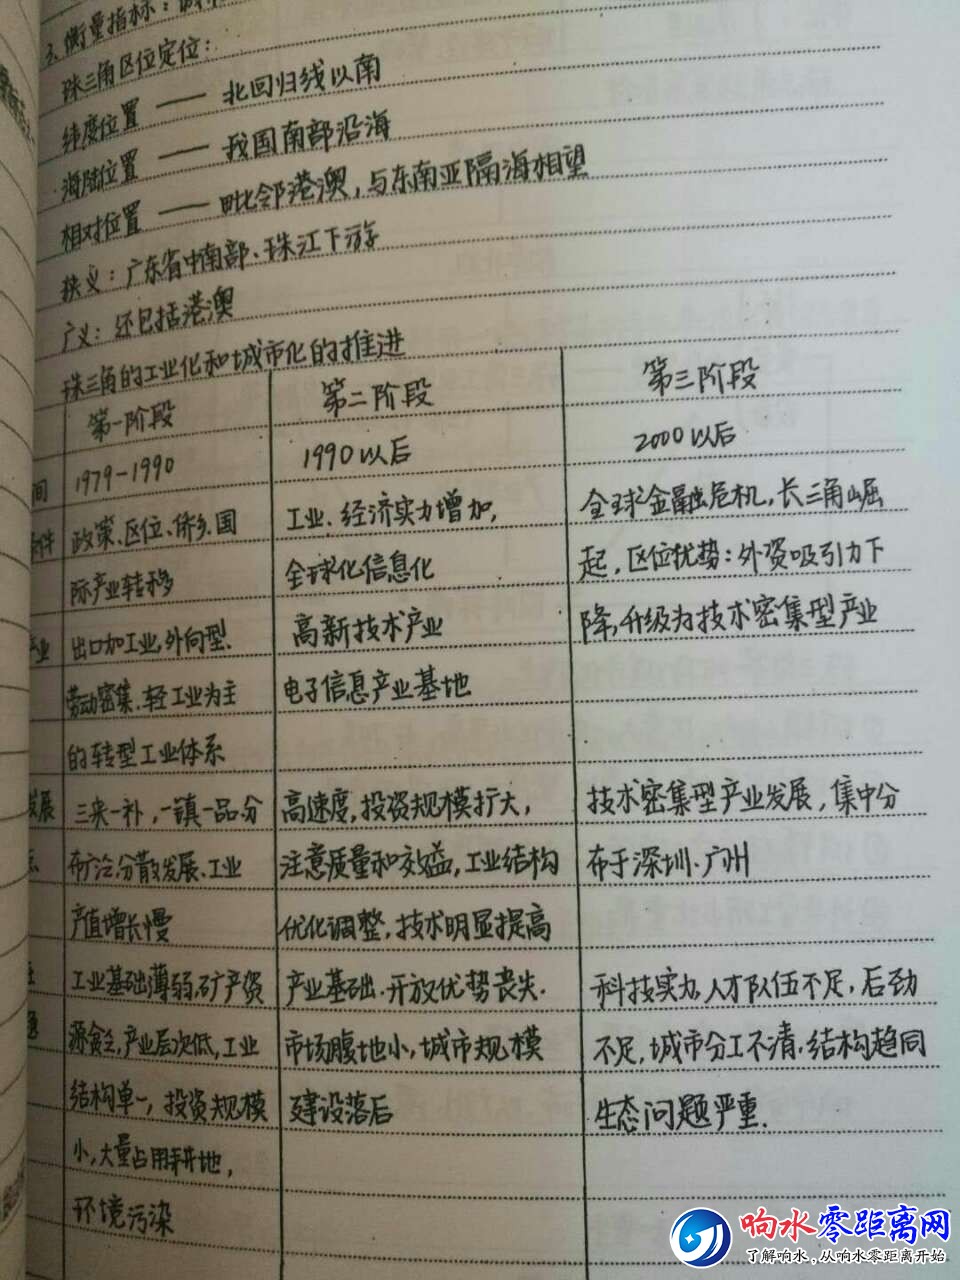 3.衡量指标:城
珠三角区位定位:
纬度位置 —— 北回归线以南
海陆位置 —— 我国南部沿海
相对位置 —— 毗邻港澳,与东南亚隔海相望
狭义:广东省中南部、珠江下游
广义:还包括港澳
珠三角的工业化和城市化的推进
第一阶段 第二阶段 第三阶段
间 1979-1990 1990以后 2000以后
条件 政策、区位、侨乡、国 工业、经济实力增加, 全球金融危机,长三角崛
际产业转移 全球化信息化 起,区位优势:外资吸引力下
产业 出口加工业,外向型. 高新技术产业 降,升级为技术密集型产业
劳动密集.轻工业为主 电子信息产业基地
的转型工业体系
发展 三来一补,一镇一品.分 高速度,投资规模扩大, 技术密集型产业发展,集中分
布广泛.分散发展、工业 注意质量和效益,工业结构 布于深圳.广州
产值增长慢 优化调整,技术明显提高
工业基础薄弱,矿产资 产业基础.开放优势丧失. 科技实力,人才队伍不足,后劲
题 源贫乏,产业层次低,工业 市场腹地小,城市规模 不足,城市分工不清.结构趋同
结构单一,投资规模 建设落后 生态问题严重.
小,大量占用耕地,
环境污染
响水零距离网
了解响水,从响水零距离开始